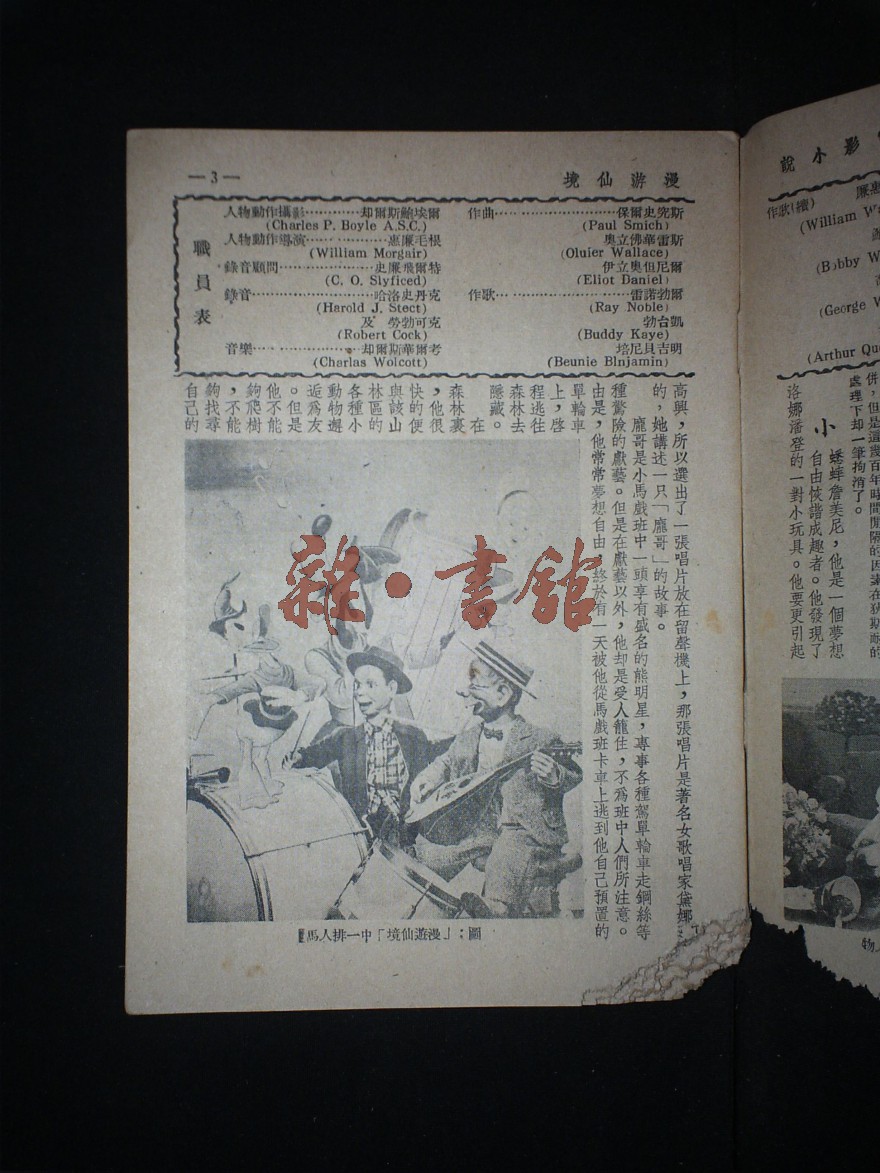 —3—
漫游仙境
職員表
人物動作攝影…………却爾斯鮑埃爾
(Charles P. Boyle A.S.C.)
人物動作導演…………惠廉毛根
(William Morgair)
錄音顧問……………史廉飛爾特
(C. O. Slyficed)
錄音……………………哈洛史丹克
(Harold J. Stect)
及 勞勃可克
(Robert Cock)
音樂……………却爾斯華爾考
(Charlas Wolcott)
作曲……………………保爾史究斯
(Paul Smich)
奧立佛華雷斯
(Oluier Wallace)
伊立奧但尼爾
(Eliot Daniel)
作歌……………………雷諾勃爾
(Ray Noble)
勃台凱
(Buddy Kaye)
培尼貝吉明
(Beunie Blnjamin)
高興，所以選出了一張唱片放在留聲機上，那張唱片是著名女歌唱家黛娜
的，她講述一只「龐哥」的故事。
龐哥是小馬戲班中一頭享有盛名的熊明星，專事各種駕單輪車走鋼絲等
種驚險的獻藝。但是在獻藝以外，他却是受人籠住，不爲班中人們所注意。
由是，他常常夢想自由，終於有一天被他從馬戲班卡車上逃到他自己預置的
單輪車
上，啓
程逃往
森林去
隱藏。
在
森林裏
，他很
快的便
與該山
林區的
各種小
動物邂
逅爲友
。但是
他不能
夠爬樹
，不能
夠找尋
自己的
圖：「漫遊仙境」中一排人馬
影小說
作歌(續)
惠廉
(William Wa
(Bobby W
(George W
(Arthur Que
併，但是這幾百年時間間隔的因素在狄斯耐的
處理下却一筆拘消了。
小
蟋蟀詹美尼，他是一個夢想
自由恢諧成趣者。他發現了
洛娜潘登的一對小玩具。他要更引起
物
雜·書館